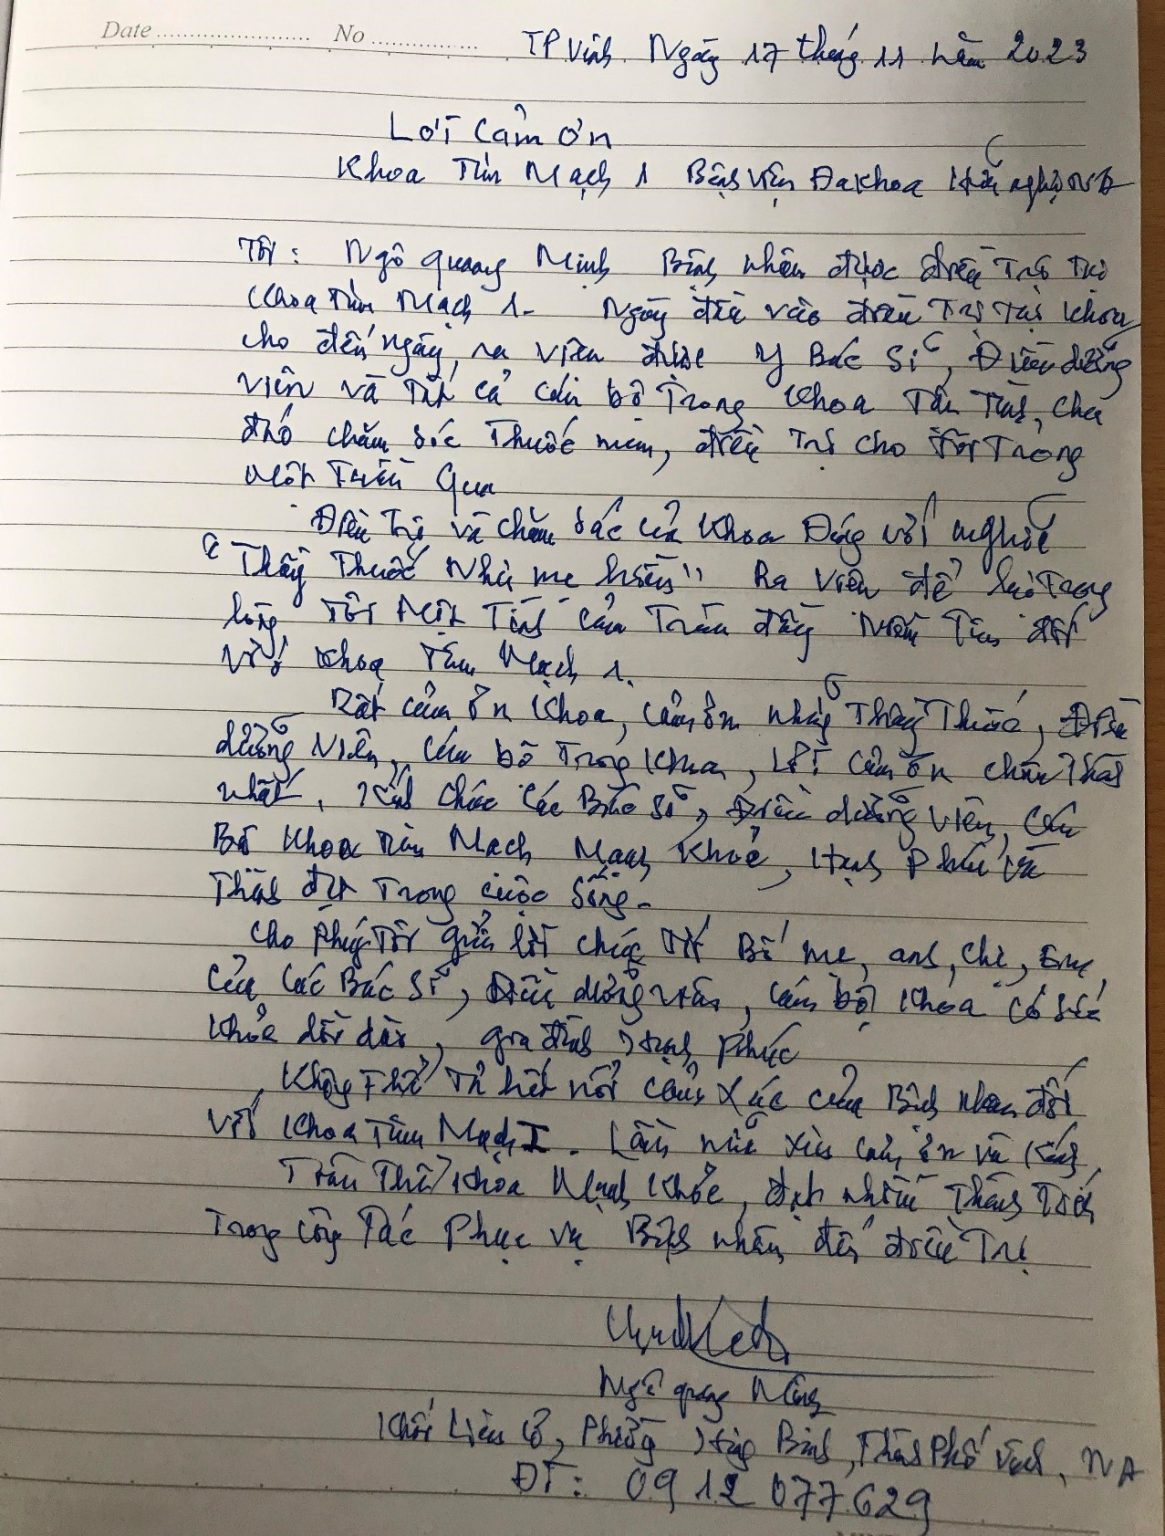 Date No
TP Vinh Ngày 17 tháng 11 năm 2023
Lời cảm ơn
Khoa Tim Mạch 1 Bệnh viện Đa khoa Hữu nghị NA
Tôi: Ngô Quang Minh Bệnh nhân được điều trị tại
Khoa Tim Mạch 1. Ngày đầu vào điều trị tại khoa
cho đến ngày ra viện được Y Bác Sĩ, Điều dưỡng
viên và tất cả cán bộ trong khoa tận tình, chu
đáo chăm sóc thuốc men, điều trị cho tôi trong
một tuần qua
Điều trị và chăm sóc của khoa Đúng với nghĩa
"Thầy thuốc Như mẹ hiền" Ra viện để lại trong
lòng tôi Một tình cảm tràn đầy niềm tin đối
với khoa Tim Mạch 1.
Rất cảm ơn khoa, cảm ơn những Thầy Thuốc, Điều
dưỡng viên, cán bộ trong khoa, lời cảm ơn chân thành
nhất, kính chúc các Bác sĩ, Điều dưỡng viên, cán
Bộ khoa Tim Mạch Mạnh khỏe, Hạnh phúc và
Thành đạt trong cuộc sống.
Cho phép tôi gửi lời chúc tới Bố mẹ, anh, chị, Em
của các Bác sĩ, Điều dưỡng viên, cán bộ khoa có sức
khỏe dồi dào, gia đình hạnh phúc
Không thể tả hết nổi cảm xúc của Bệnh nhân đối
với khoa Tim Mạch I. Lần nữa xin cảm ơn và kính
Mạnh khỏe, đạt nhiều
trong công tác phục vụ Bệnh nhân đến điều trị
Ngô quang Minh
Khối Liên Cơ, Phường Hưng Bình, Thành Phố Vinh, NA
ĐT: 0912 077 629